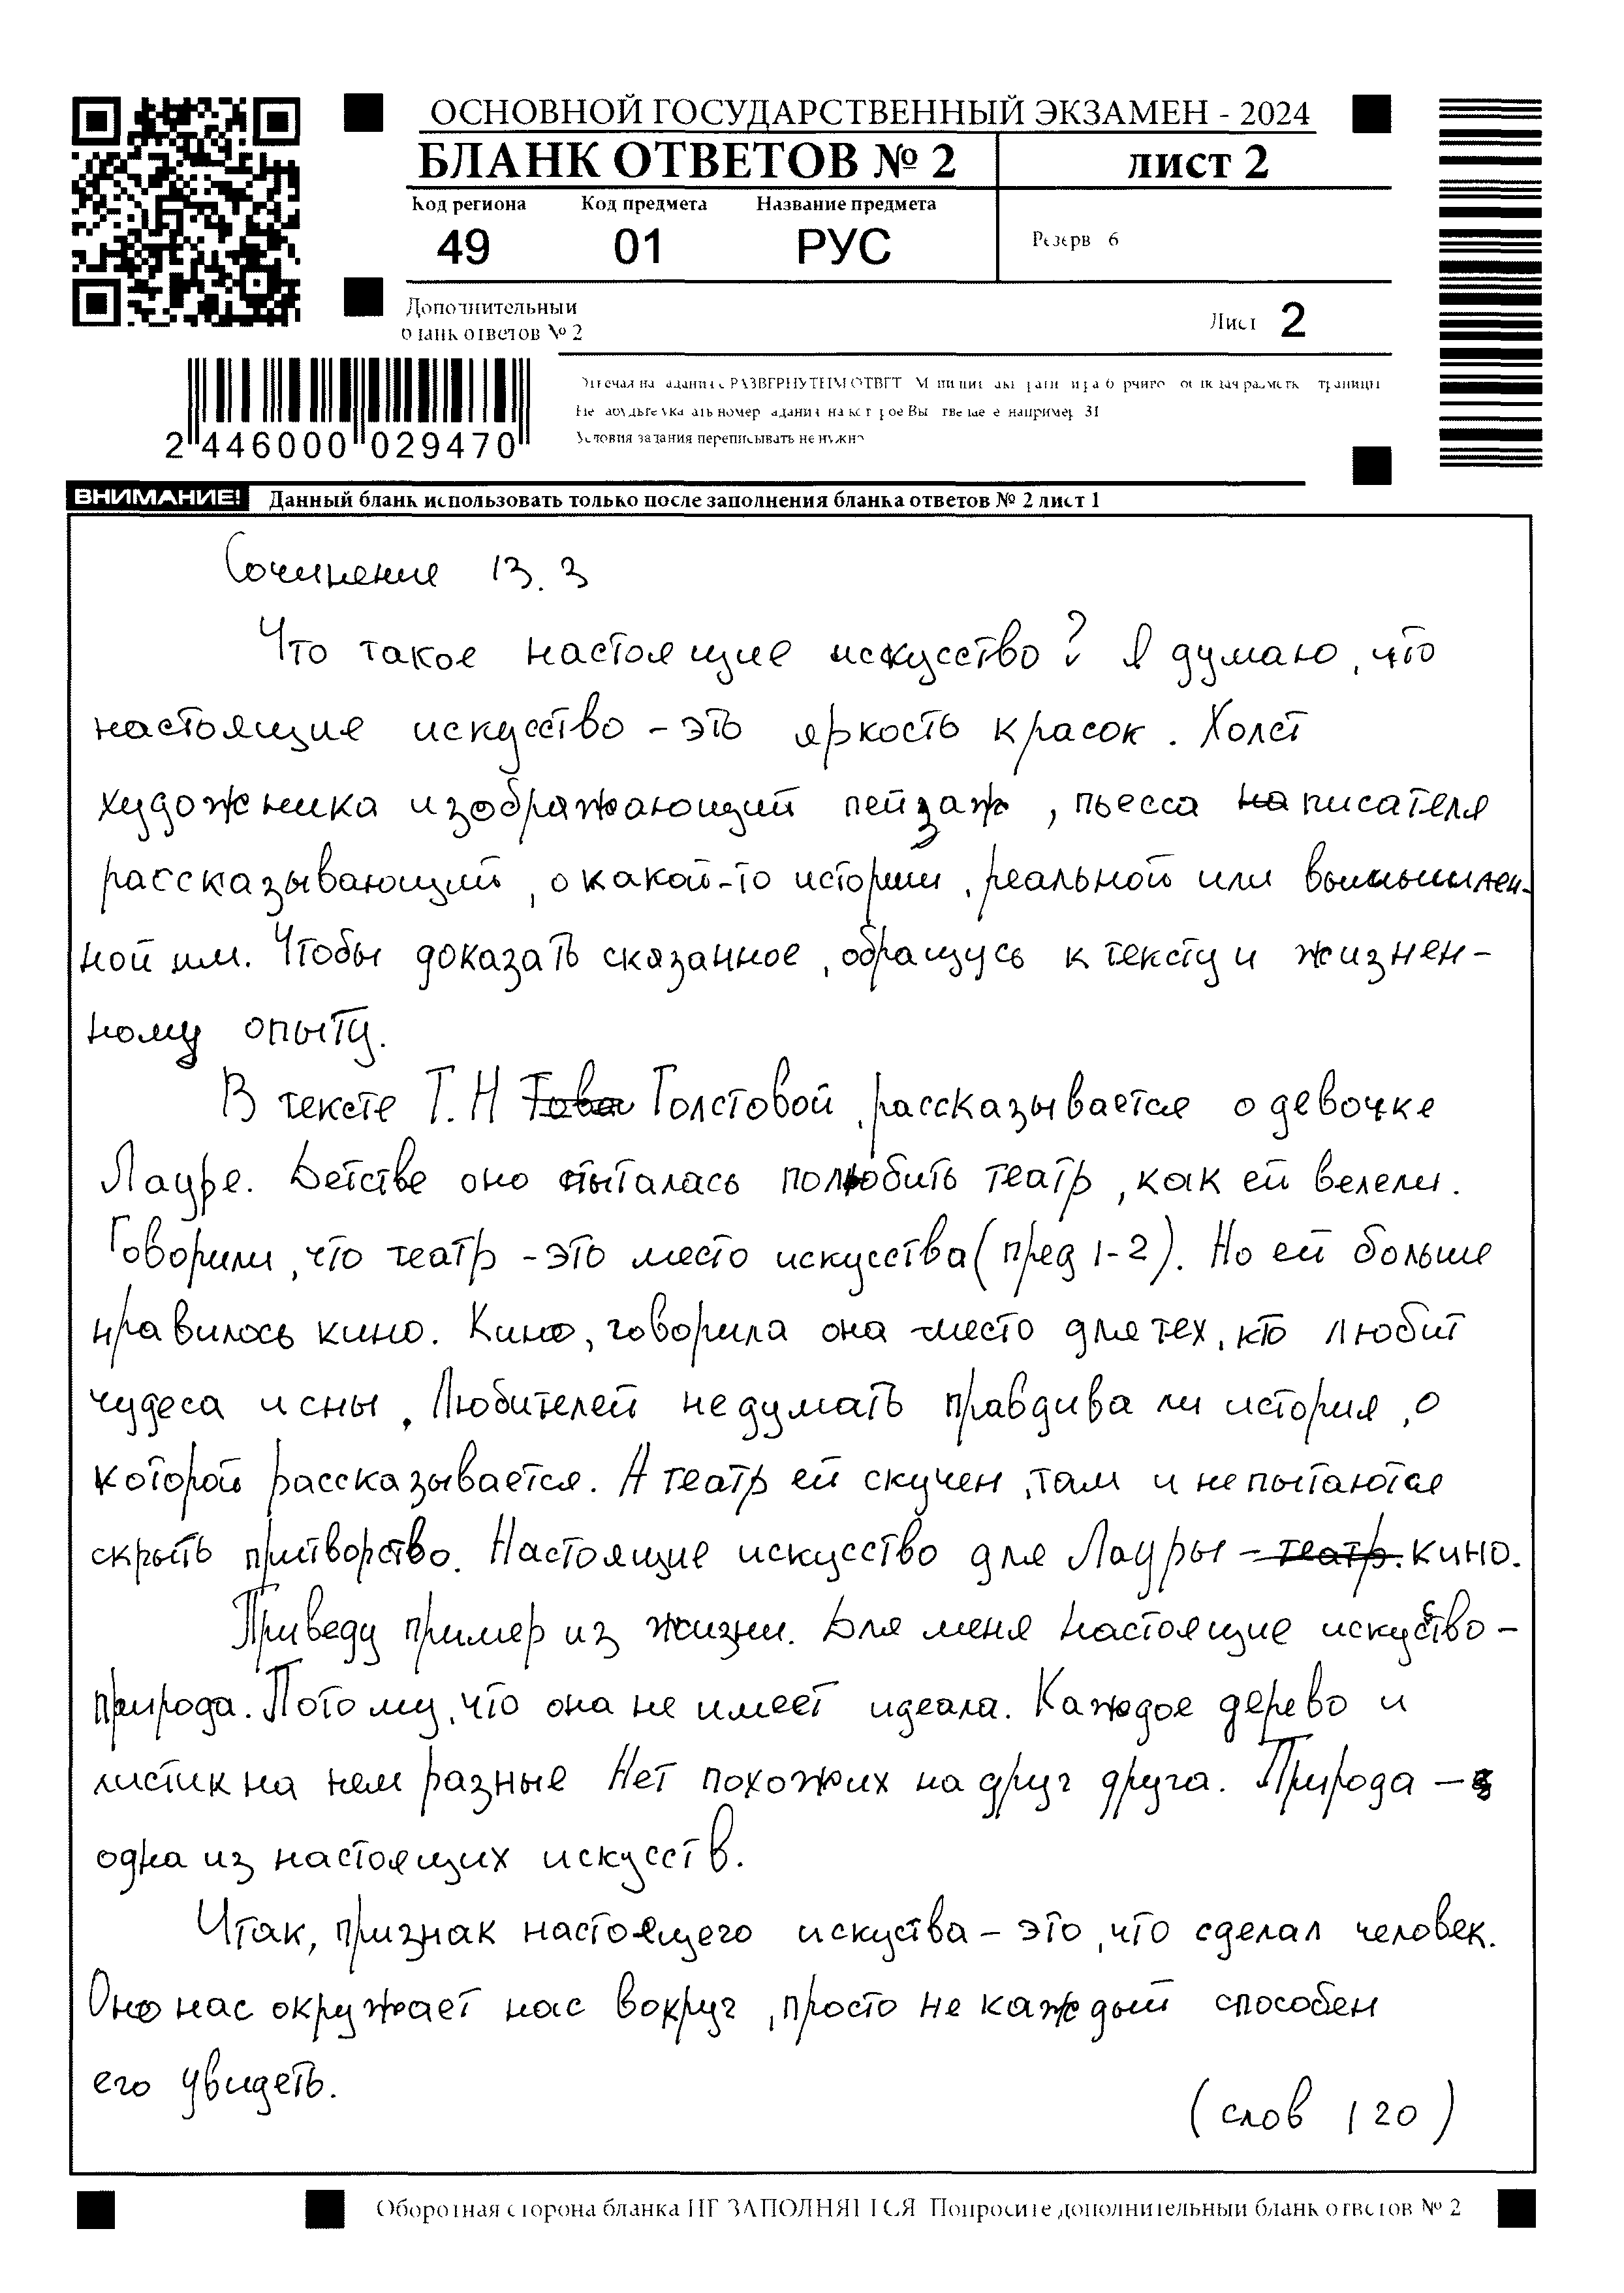 ОСНОВНОЙ ГОСУДАРСТВЕННЫЙ ЭКЗАМЕН - 2024
БЛАНК ОТВЕТОВ № 2
лист 2
Код региона Код предмета Название предмета
49 01 РУС
Резерв 6
Дополнительный
бланк ответов № 2
Лист 2
2 446000 029470
Условия задания переписывать не нужно
ВНИМАНИЕ! Данный бланк использовать только после заполнения бланка ответов № 2 лист 1
Сочинение 13.3
Что такое настоящие искусство? Я думаю, что
настоящие искусство - это яркость красок. Холст
художника изображающий пейзаж, пьесса писателя
рассказывающий, о какой-то истории, реальной или вымышлен-
ной им. Чтобы доказать сказанное, обращусь к тексту и жизнен-
ному опыту.
В тексте Т.Н Толстовой, рассказывается о девочке
Лауре. Детстве оно пыталась полюбить театр, как ей велели.
Говорили, что театр - это место искусства (пред 1-2). Но ей больше
нравилось кино. Кино, говорила она место для тех, кто любит
чудеса и сны. Любителей не думать правдива ли история, о
которой рассказывается. А театр ей скучен, там и не пытаются
скрыть притворство. Настоящие искусство для Лауры - кино.
Приведу пример из жизни. Для меня настоящие искусство -
природа. Потому, что она не имеет идеала. Каждое дерево и
листик на нем разные Нет похожих на друг друга. Природа -
одна из настоящих искусств.
Итак, признак настоящего искуства - это, что сделал человек.
Оно нас окружает нас вокруг, просто не каждый способен
его увидеть.
(слов 120)
Оборотная сторона бланка НЕ ЗАПОЛНЯЕТСЯ Попросите дополнительный бланк ответов № 2